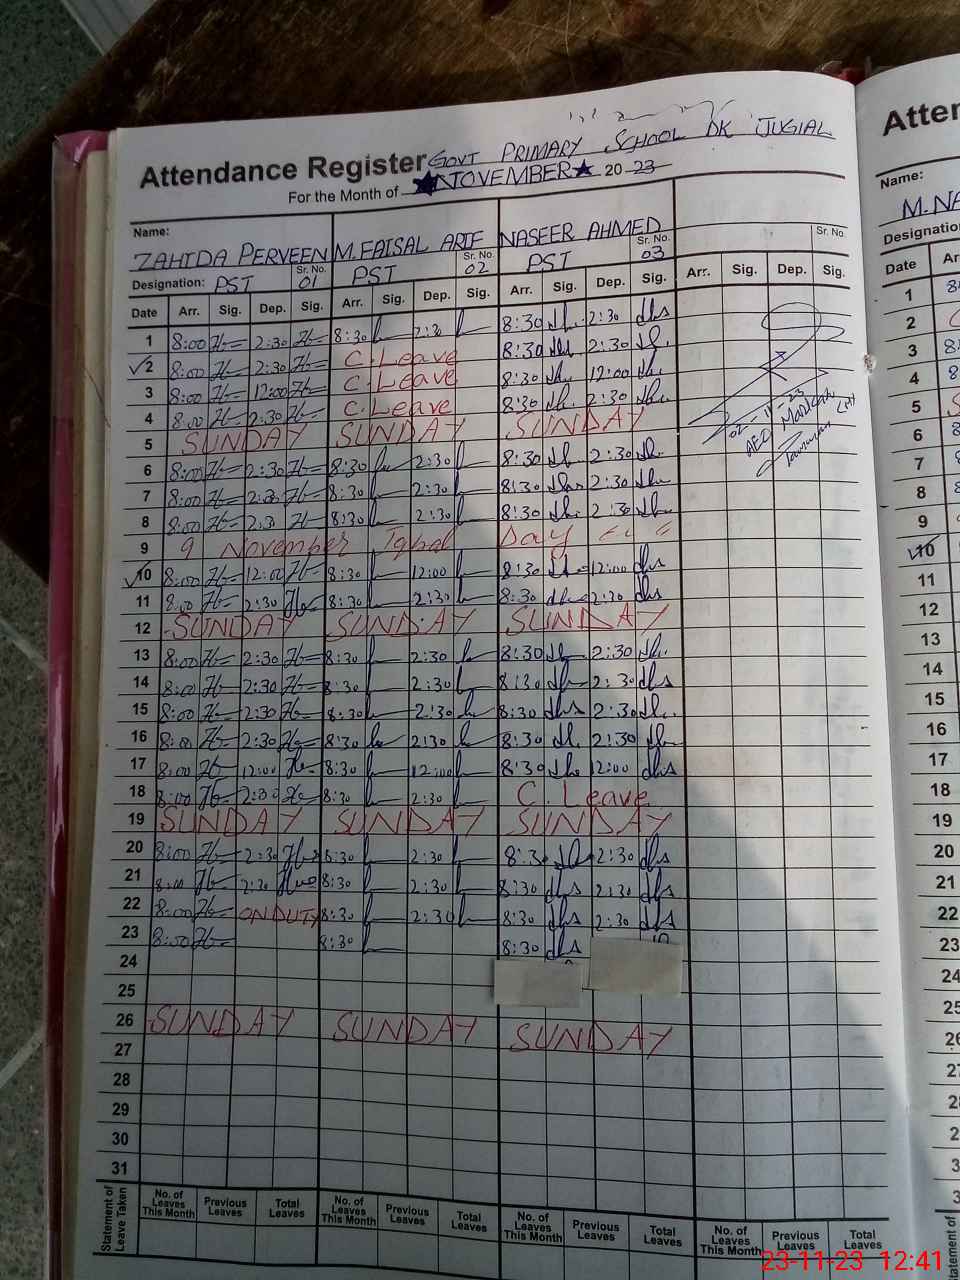 Attendance Register GOVT PRIMARY SCHOOL DK JUGIAL
For the Month of ★NOVEMBER★ 2023
Name:
ZAHIDA PERVEEN M. FAISAL ARIF NASEER AHMED
Designation: PST Sr. No. 01 PST Sr. No. 02 PST Sr. No. 03 Sr. No.
Date Arr. Sig. Dep. Sig. Arr. Sig. Dep. Sig. Arr. Sig. Dep. Sig. Arr. Sig. Dep. Sig.
1 8:00 2:30 8:30 2:30 8:30 2:30
✓2 8:00 2:30 C. Leave 8:30 2:30
3 8:00 12:00 C. Leave 8:30 12:00
4 8:00 2:30 C. Leave 8:30 2:30
5 SUNDAY SUNDAY SUNDAY
6 8:00 2:30 8:30 2:30 8:30 2:30
7 8:00 2:30 8:30 2:30 8:30 2:30
8 8:00 2:30 8:30 2:30 8:30 2:30
9 9 November Iqbal Day
✓10 8:00 12:00 8:30 12:00 8:30 12:00
11 8:00 2:30 8:30 2:30 8:30 2:30
12 SUNDAY SUNDAY SUNDAY
13 8:00 2:30 8:30 2:30 8:30 2:30
14 8:00 2:30 8:30 2:30 8:30 2:30
15 8:00 2:30 8:30 2:30 8:30 2:30
16 8:00 2:30 8:30 2:30 8:30 2:30
17 8:00 12:00 8:30 12:00 8:30 12:00
18 8:00 2:30 8:30 2:30 C. Leave
19 SUNDAY SUNDAY SUNDAY
20 8:00 2:30 8:30 2:30 8:30 2:30
21 8:00 2:30 8:30 2:30 8:30 2:30
22 8:00 ON DUTY 8:30 2:30 8:30 2:30
23 8:00 8:30 8:30
24
25
26 SUNDAY SUNDAY SUNDAY
27
28
29
30
31
Statement of Leave Taken No. of Leaves This Month Previous Leaves Total Leaves No. of Leaves This Month Previous Leaves Total Leaves No. of Leaves This Month Previous Leaves Total Leaves No. of Leaves This Month Previous Leaves Total Leaves
02-11-23
AEO
Atten
Name:
M. NA
Designation
Date Ar
1
2
3
4
5
6
7
8
9
✓10
11
12
13
14
15
16
17
18
19
20
21
22
23
24
25
26
27
23-11-23 12:41